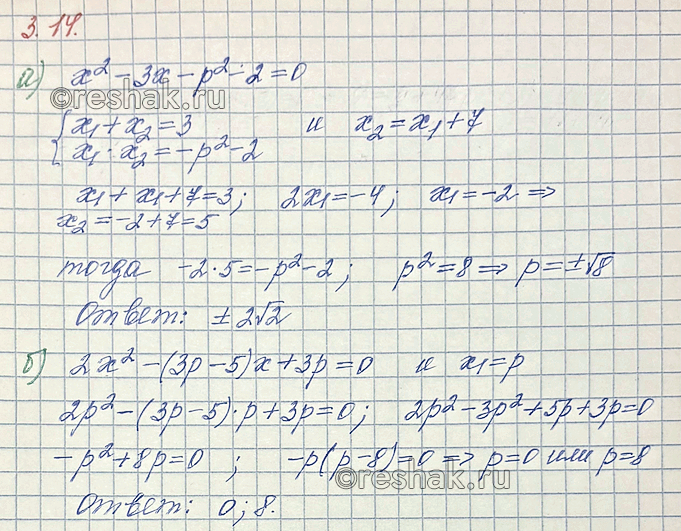 3.14.
а) x² - 3x - p² - 2 = 0
©reshak.ru
{ x₁ + x₂ = 3 и x₂ = x₁ + 7
x₁ · x₂ = -p² - 2
x₁ + x₁ + 7 = 3; 2x₁ = -4; x₁ = -2 ⇒
x₂ = -2 + 7 = 5
тогда -2·5 = -p² - 2; p² = 8 ⇒ p = ±√8
Ответ: ±2√2
б) 2x² - (3p - 5)x + 3p = 0 и x₁ = p
2p² - (3p - 5)·p + 3p = 0; 2p² - 3p² + 5p + 3p = 0
-p² + 8p = 0; -p(p - 8) = 0 ⇒ p = 0 или p = 8
©reshak.ru
Ответ: 0; 8.